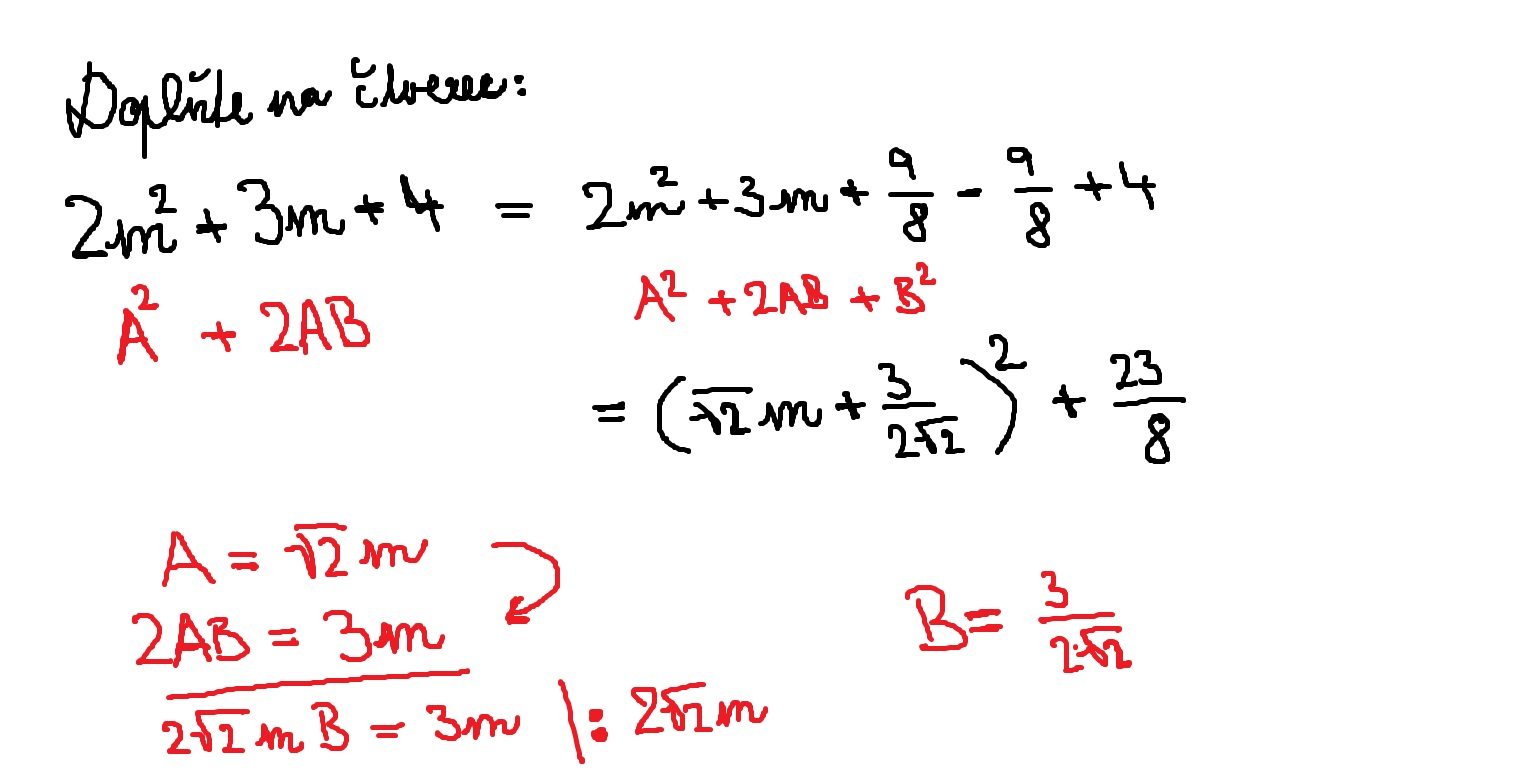 Doplňte na čtverec:
2m² + 3m + 4 = 2m² + 3m + 9/8 - 9/8 + 4
A² + 2AB
A² + 2AB + B²
= (√2 m + 3/(2√2))² + 23/8
A = √2 m
2AB = 3m
2√2 m B = 3m |: 2√2 m
B = 3/(2√2)